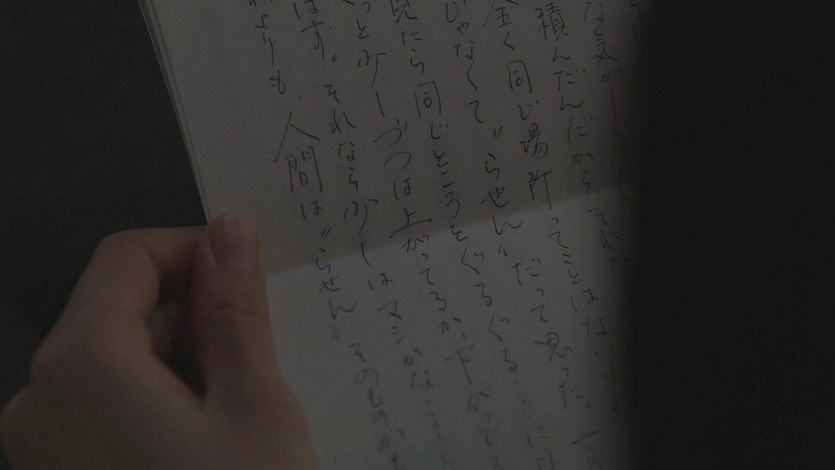 な気がし
積んだんだから、それ
全く同じ場所ってことはないよ
じゃなくて”らせん”だって思った。一
見たら同じところをぐるぐる……に見
っと少しづつは上がってるか、下がってる
はず。それなら少しはマシかな……
れよりも、人間は”らせん”そのものかも